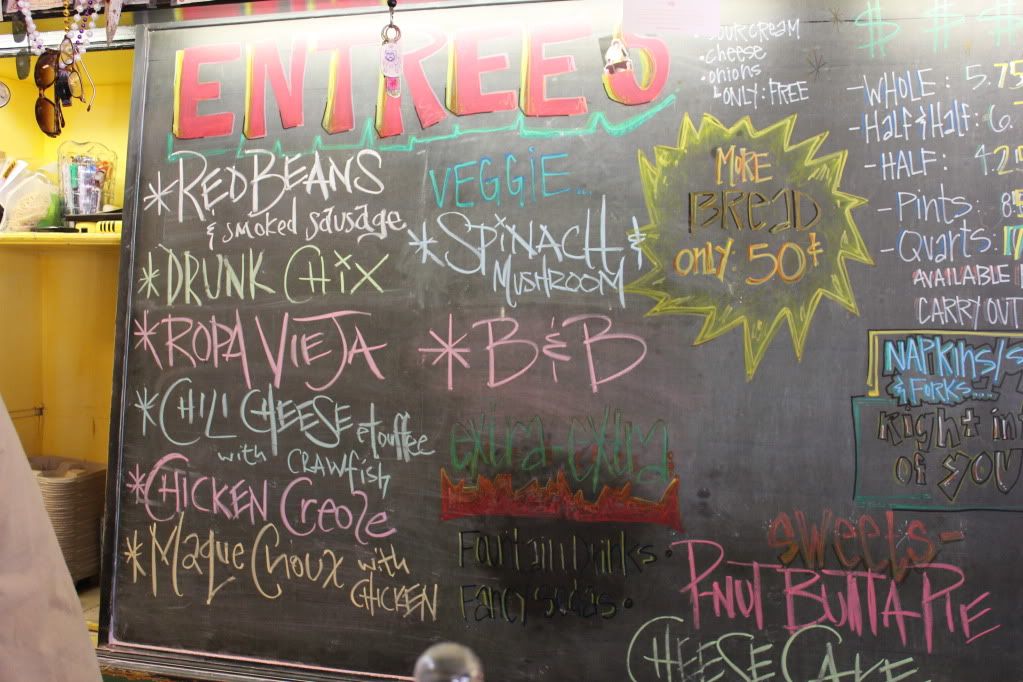 ENTREES
*RED BEANS
& smoked sausage
*DRUNK CHIX
*ROPA VIEJA
*CHILI CHEESE etouffee
with CRAWFISH
*CHICKEN Creole
*Maque Choux with
CHICKEN
VEGGIE...
*SPINACH &
MUSHROOM
*B&B
extra-extra
Fountain Drinks •
Fancy sodas •
• sour cream
• cheese
• onions
↳ ONLY: FREE
MORE
BREAD
only 50¢
$ $ $
-WHOLE: 5.75
-Half & Half: 6.
-HALF: 4.25
-Pints:
-Quarts:
AVAILABLE
CARRY OUT
NAPKINS/
& FORKS...
Right in
of YOU
sweets-
P-NUT BUTTA PIE
CHEESE CAKE